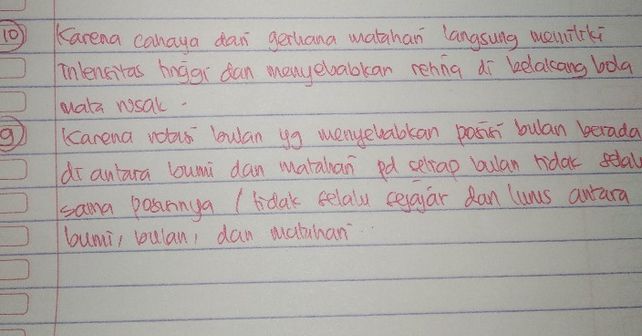 10) Karena cahaya dari gerhana matahari langsung memiliki
intensitas tinggi dan menyebabkan retina di belakang bola
mata rusak.
9) Karena rotasi bulan yg menyebabkan posisi bulan berada
di antara bumi dan matahari pd setiap bulan tidak selalu
sama posisinya / tidak selalu sejajar dan lurus antara
bumi, bulan, dan matahari